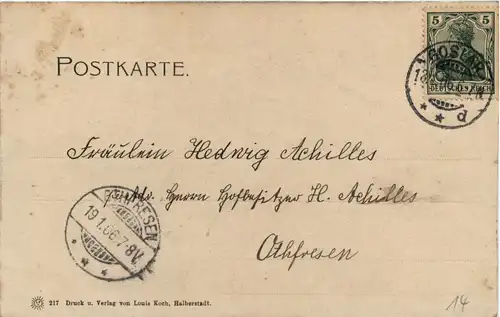 5 5
DEUTSCHES REICH
GOSLAR
* * d
POSTKARTE.
Fräulein Hedwig Achilles
Adr. Herrn Hofbesitzer H. Achilles
Othfresen
19.1.06. 7-8V.
217 Druck u. Verlag von Louis Koch, Halberstadt.
14